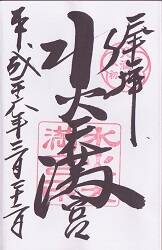 奉拝
水火天満宮
平成二十八年三月二十二日